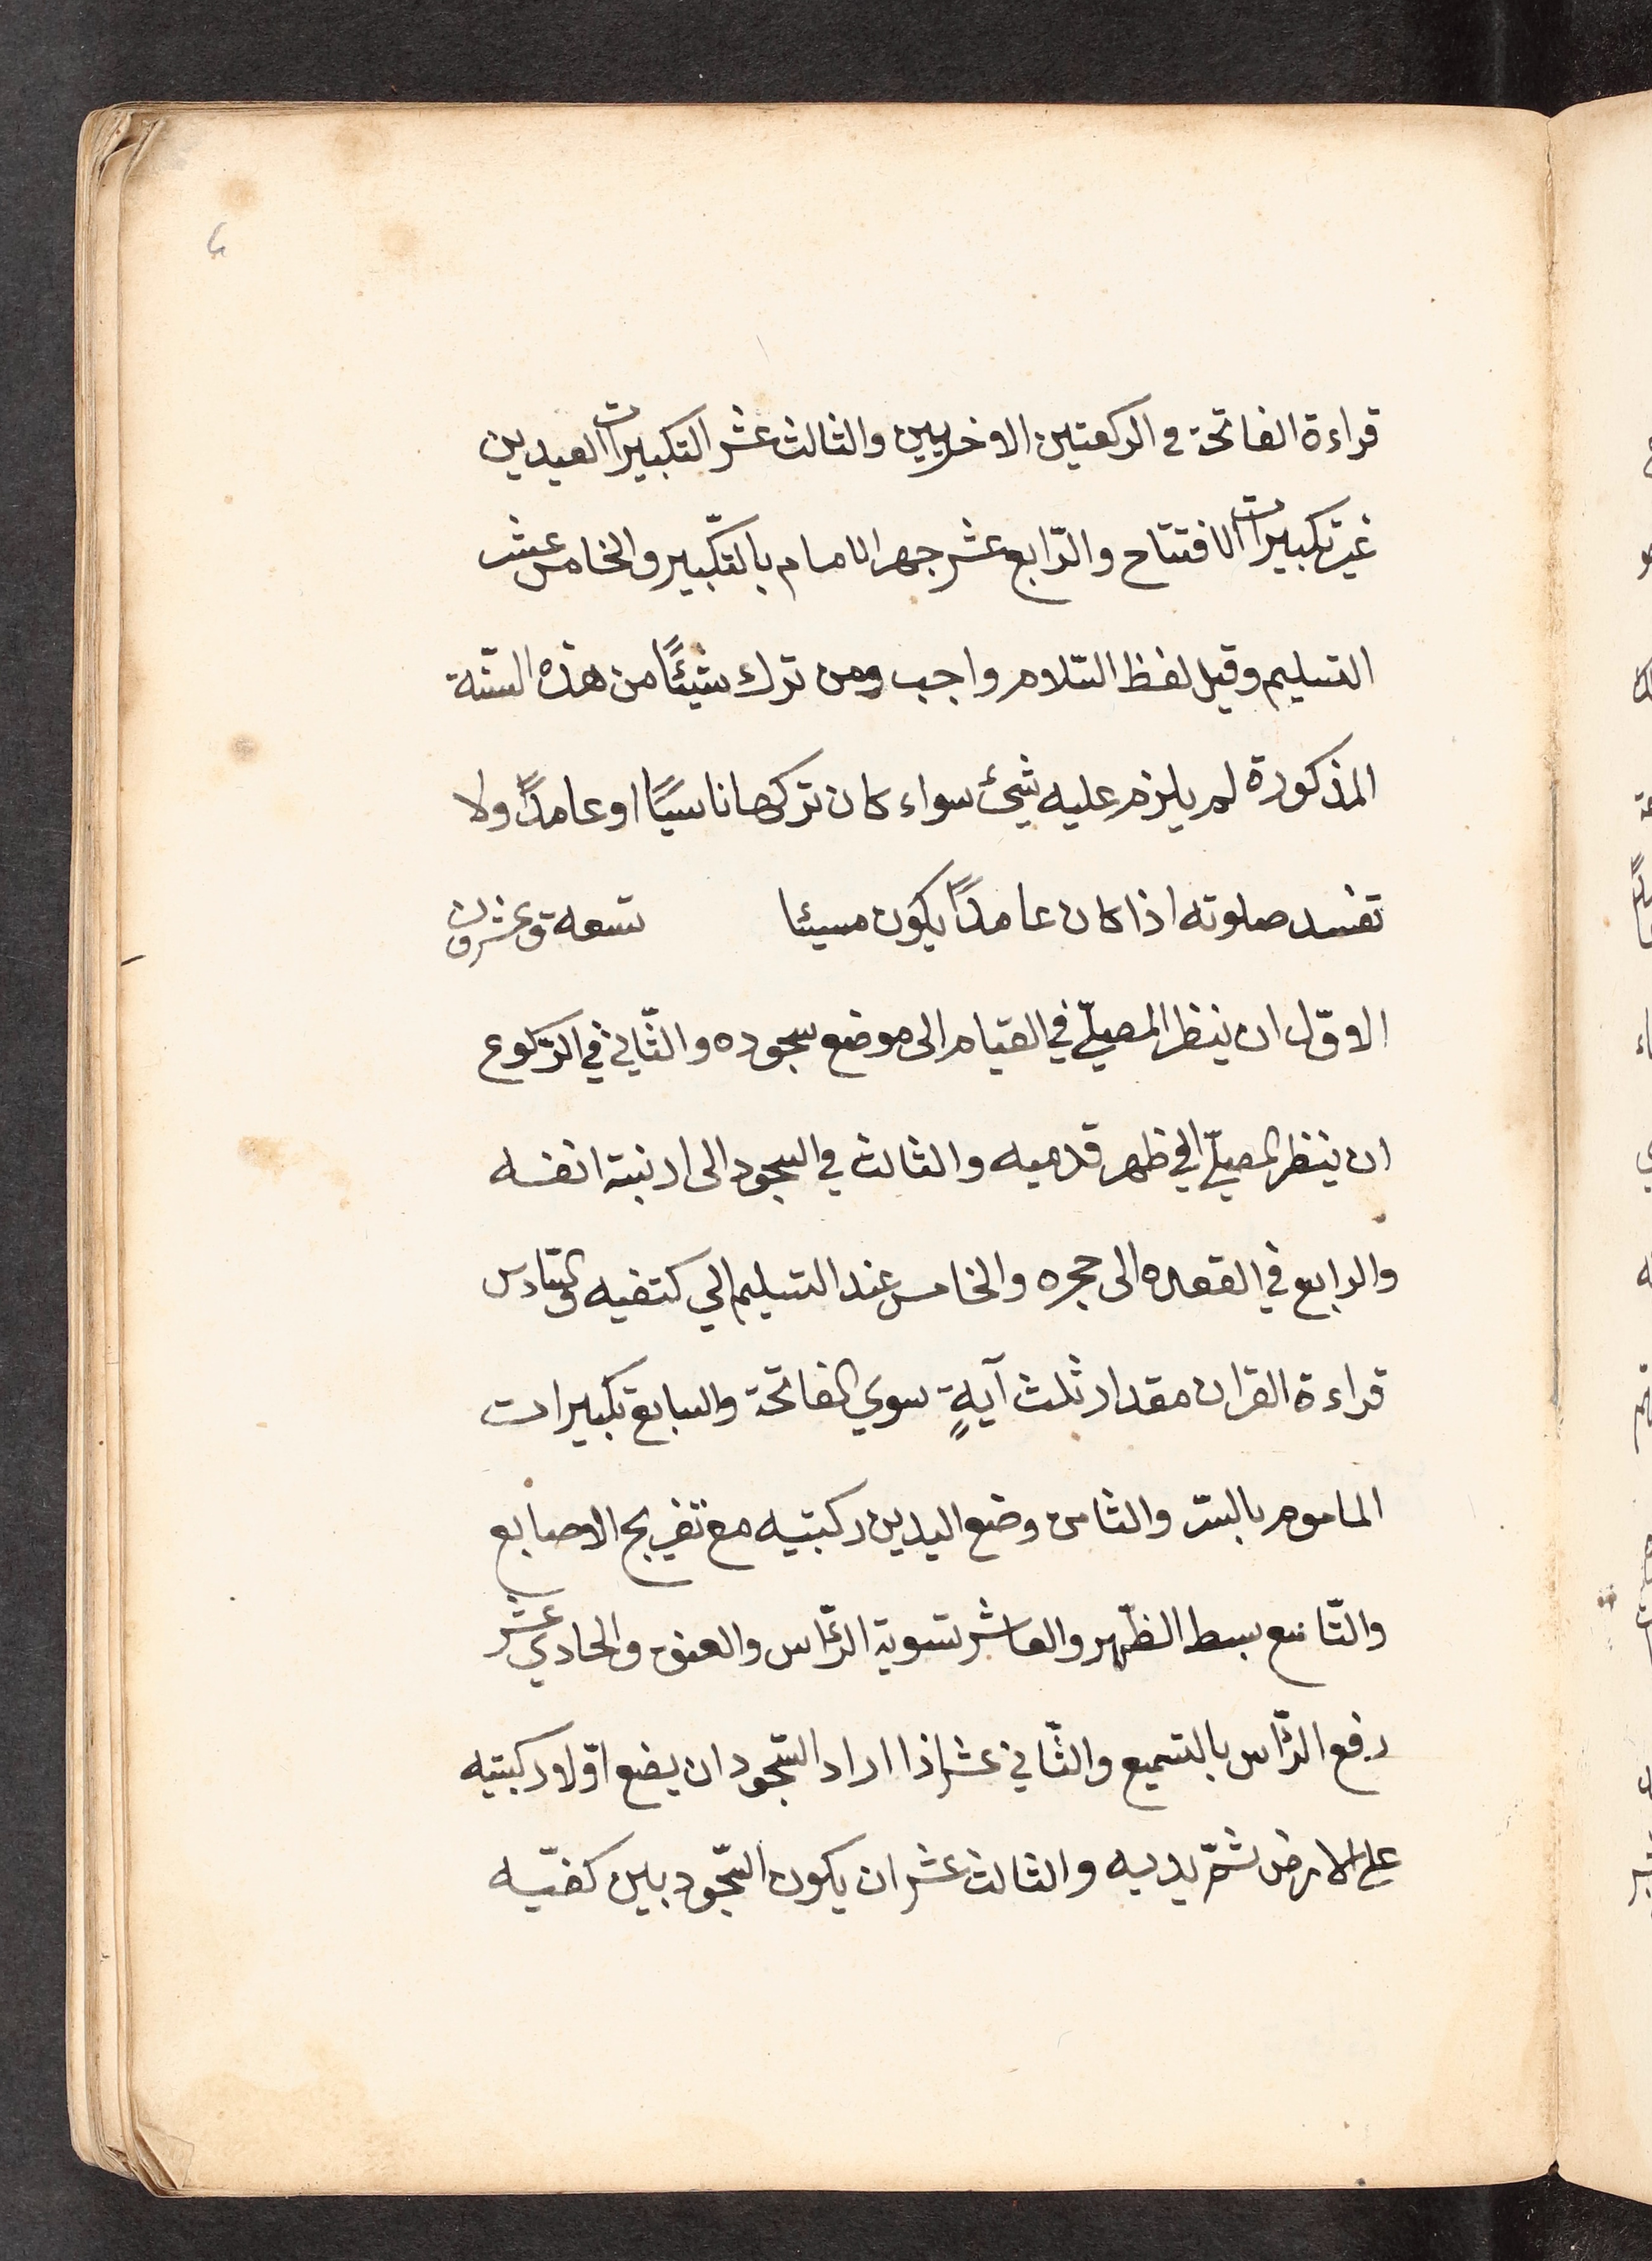 قراءة الفاتحة في الركعتين الاخريين والثالث عشر التكبيرات العيدين
غير تكبيرات الافتتاح والرّابع عشر جهر الامام بالتكّبير والخامس عشر
التسليم وقيل لفظ السّلام واجب ومن ترك شيئًا من هذه السنّة
المذكورة لم يلزم عليه شيئ سواء كان تركها ناسيًا او عامدًا ولا
تفسد صلوته اذا كان عامدًا يكون مسيئا تسعة وعشرون
الاوّل ان ينظر المصلّي في القيام الى موضع سجوده والثّاني في الرّكوع
ان ينظر المصلّي الي ظهر قدميه والثالث في السجود الى ارنبة انفسه
والرابع في القعده الى حجره والخامس عند التسليم الي كتفيه والسّادس
قراءة القران مقدار ثلث آيةٍ سوي الفاتحة والسابع تكبيرات
الماموم بالسّر والثامن وضع اليدين ركبتيه مع تفريج الاصابع
والتّاسع بسط الظّهر والعاشر تسوية الرّأس والعنق والحادي عشر
رفع الرّأس بالتسميع والثّاني عشر اذا اراد السّجود ان يضع اوّلا ركبتيه
علي الارض ثمّ يديه والثالث عشر ان يكون السّجود بين كفّيه